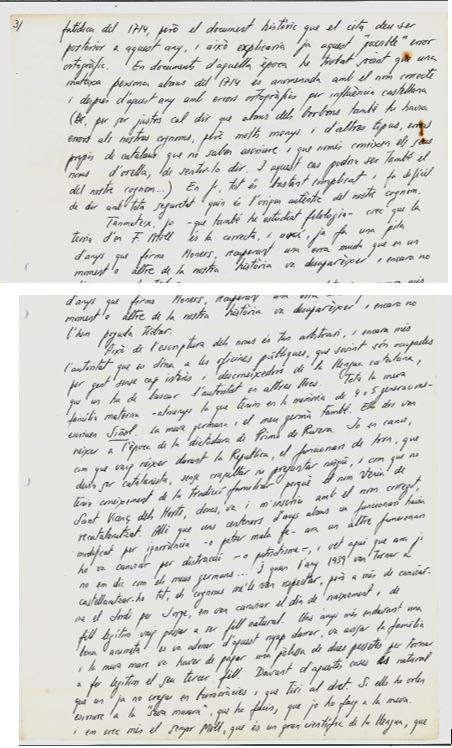 3/
fatídica del 1714, però el document històric que el cita deu ser
posterior a aquest any, i això explicaria ja aquest "possible" error
ortogràfic. En documents d'aquella època he trobat sovint que una
mateixa persona abans del 1714 és anomenada amb el nom correcte
i després d'aquest any amb errors ortogràfics per influència castellana
per ser justos cal dir que abans dels borbons també hi havia
errors als nostres cognoms, però molts menys i d'altres tipus, errors
propis de catalans que no saben escriure i que només coneixen el seus
noms d'orella, de sentir-lo dir. I aquest cas podria ser també el
del nostre cognom...) En fi, tot és bastant complicat i fa difícil
de dir amb tota seguretat quin és l'origen autèntic del nostre cognom.
Tanmateix, jo -que també he estudiat filologia- crec que la
teoria d'en F. Moll és la correcta, i així, ja fa una pila
d'anys que firmo Noners, recuperant una erra muda que en un
moment o altre de la nostra història va desaparèixer i encara no
d'anys que firmo Noners, recuperant una erra
moment o altre de la nostra història va desaparèixer i encara no
l'hem poguda trobar.
Això de l'escriptura dels noms és tan arbitrari, i encara més
l'autoritat que es dóna a les oficines públiques, que sovint són ocupades
per gent sense cap interès i desconeixedors de la llengua catalana,
que un ha de buscar l'autoritat en altres llocs. Tota la meva
família materna -almenys la que tenim en la memòria de 4 o 5 generacions-
escriuen Siñol. La meva germana i el meu germà també. Ells dos van
néixer a l'època de la dictadura de Primo de Rivera. Jo en canvi,
com que vaig néixer durant la República, el funcionari de torn, que
devia ser catalanista, sense consultar ni preguntar ningú, i com que no
tenia coneixement de la tradició familiar perquè el nom venia de
Sant Vicenç dels Horts, doncs, va i m'inscriu amb el nom corregit,
recatalanitzat. Allò que uns centenars d'anys abans un funcionari havia
modificat per ignorància -o potser mala fe- ara un altre funcionari
ho va canviar per distracció -o patriotisme-, i vet aquí que ara jo
no em dic com els meus germans... I quan l'any 1939 van tornar a
castellanitzar-ho tot, els cognoms me'ls van respectar, però a més de canviar-
me el Jordi per Jorge, em van canviar el dia de naixement, i de
fill legítim vaig passar a ser fill natural. Uns anys més endavant una
es va adonar d'aquest nyap darrer, va avisar la família
i la meva mare va haver de pagar una pòlissa de dues pessetes per tornar
a fer legítim el seu tercer fill. Davant d'aquestes coses és natural
que un ja no cregui en burocràcies i que tiri al dret. Si ells ho volen
escriure a la "seva manera", que ho facin, que jo ho faig a la meva.
i em crec més el senyor Moll, que és un gran científic de la llengua, que